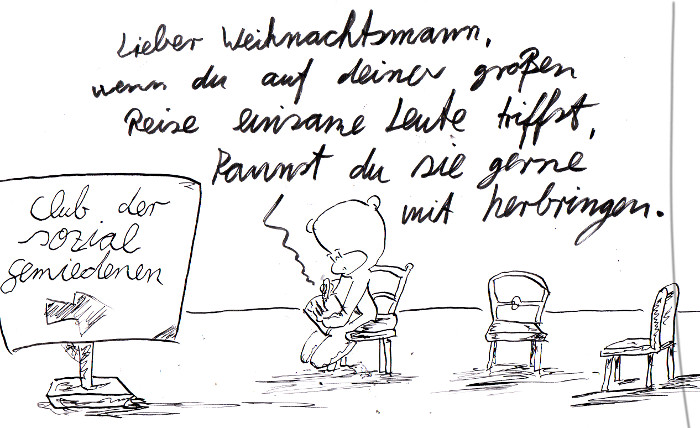 Lieber Weihnachtsmann,
wenn du auf deiner großen
Reise einsame Leute triffst,
kannst du sie gerne
mit herbringen.
Club der
sozial
gemiedenen